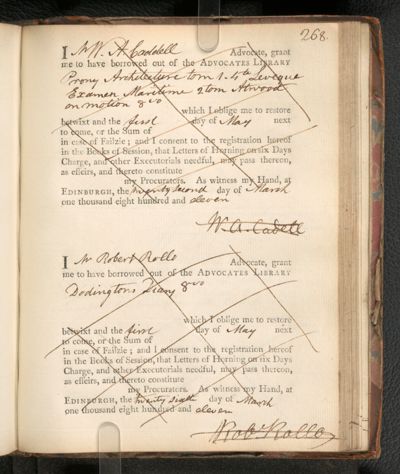 268.
I Mr W. A. Caddell Advocate, grant
me to have borrowed out of the ADVOCATES LIBRARY
Prony Architecture tom 1. 4to Leveque
Examen Maritime 2 tom Atwood
on motion 8vo
which I oblige me to restore
betwixt and the first day of May next
to come, or the Sum of
in case of Failzie; and I consent to the registration hereof
in the Books of Session, that Letters of Horning on six Days
Charge, and other Executorials needful, may pass thereon,
as effeirs, and thereto constitute
my Procurators. As witness my Hand, at
EDINBURGH, the twenty second day of March
one thousand eight hundred and eleven
W. A. Cadell
I Mr Robert Rollo Advocate, grant
me to have borrowed out of the ADVOCATES LIBRARY
Dodingtons Diary 8vo
which I oblige me to restore
betwixt and the first day of May next
to come, or the Sum of
in case of Failzie; and I consent to the registration hereof
in the Books of Session, that Letters of Horning on six Days
Charge, and other Executorials needful, may pass thereon,
as effeirs, and thereto constitute
my Procurators. As witness my Hand, at
EDINBURGH, the twenty sixth day of March
one thousand eight hundred and eleven
Robt Rollo